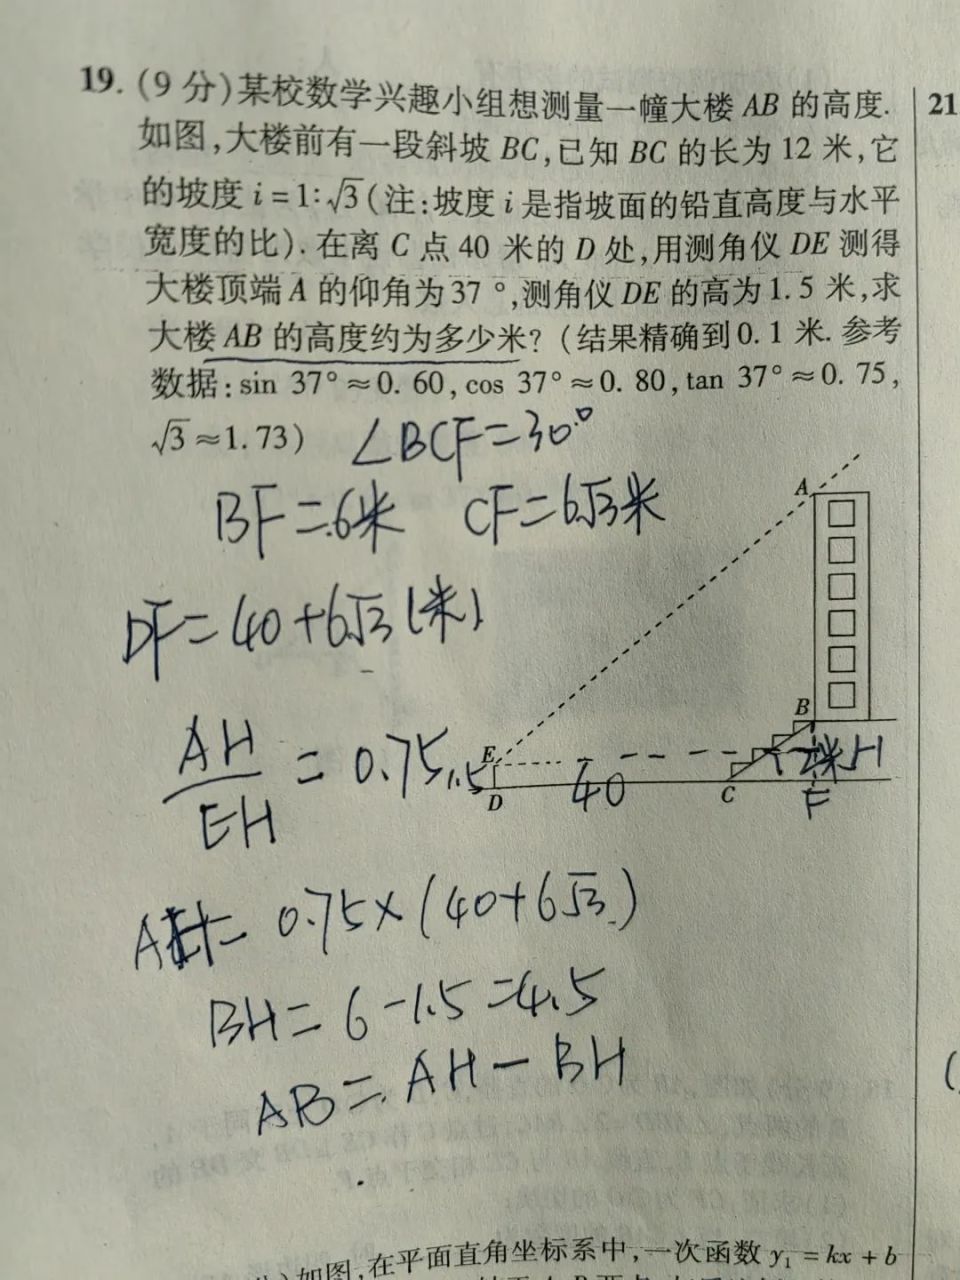 19. (9 分)某校数学兴趣小组想测量一幢大楼 AB 的高度.
如图,大楼前有一段斜坡 BC,已知 BC 的长为 12 米,它
的坡度 i = 1:√3(注:坡度 i 是指坡面的铅直高度与水平
宽度的比). 在离 C 点 40 米的 D 处,用测角仪 DE 测得
大楼顶端 A 的仰角为 37 °,测角仪 DE 的高为 1. 5 米,求
大楼 AB 的高度约为多少米? (结果精确到 0. 1 米. 参考
数据: sin 37° ≈ 0. 60, cos 37° ≈ 0. 80, tan 37° ≈ 0. 75,
√3 ≈ 1. 73)
∠BCF=30°
BF=6米 CF=6√3米
DF=40+6√3(米)
AH/EH=0.75
AH=0.75×(40+6√3)
BH=6-1.5=4.5
AB=AH-BH
A
B
E
1.5
H
D
40
C
F
21
如图,在平面直角坐标系中,一次函数 y₁ = kx + b